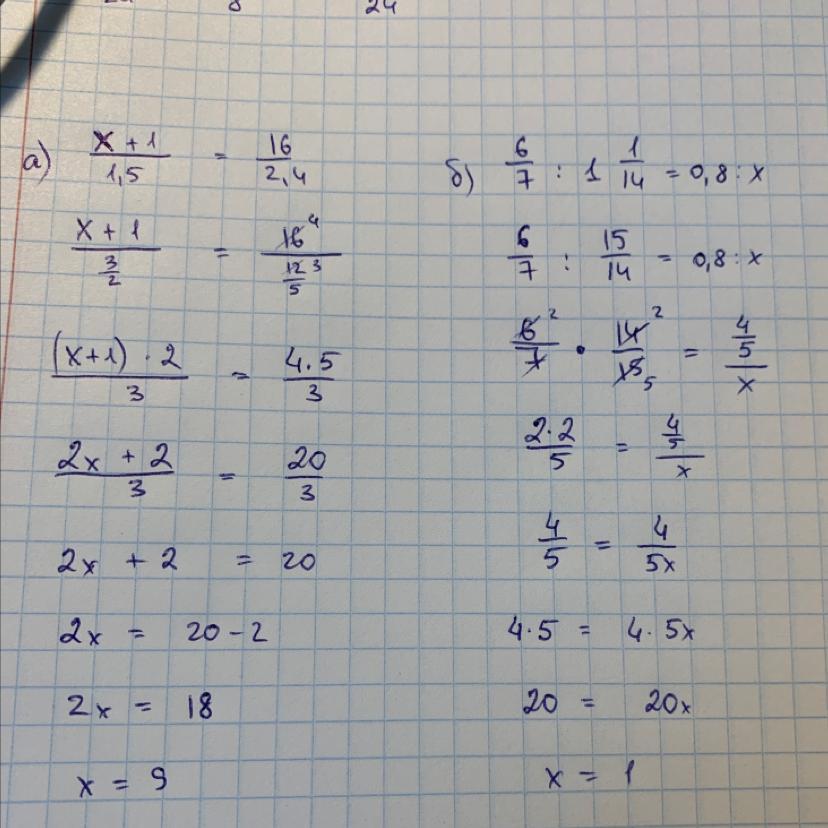 24
а) x + 1 / 1,5 = 16 / 2,4
x + 1 / 3/2 = 16 4 / 12/5 3
(x+1) · 2 / 3 = 4·5 / 3
2x + 2 / 3 = 20 / 3
2x + 2 = 20
2x = 20 - 2
2x = 18
x = 9
б) 6/7 : 1 1/14 = 0,8 : x
6/7 : 15/14 = 0,8 : x
6 2 / 7 · 14 2 / 15 5 = 4/5 / x
2·2 / 5 = 4/5 / x
4/5 = 4/5x
4·5 = 4·5x
20 = 20x
x = 1